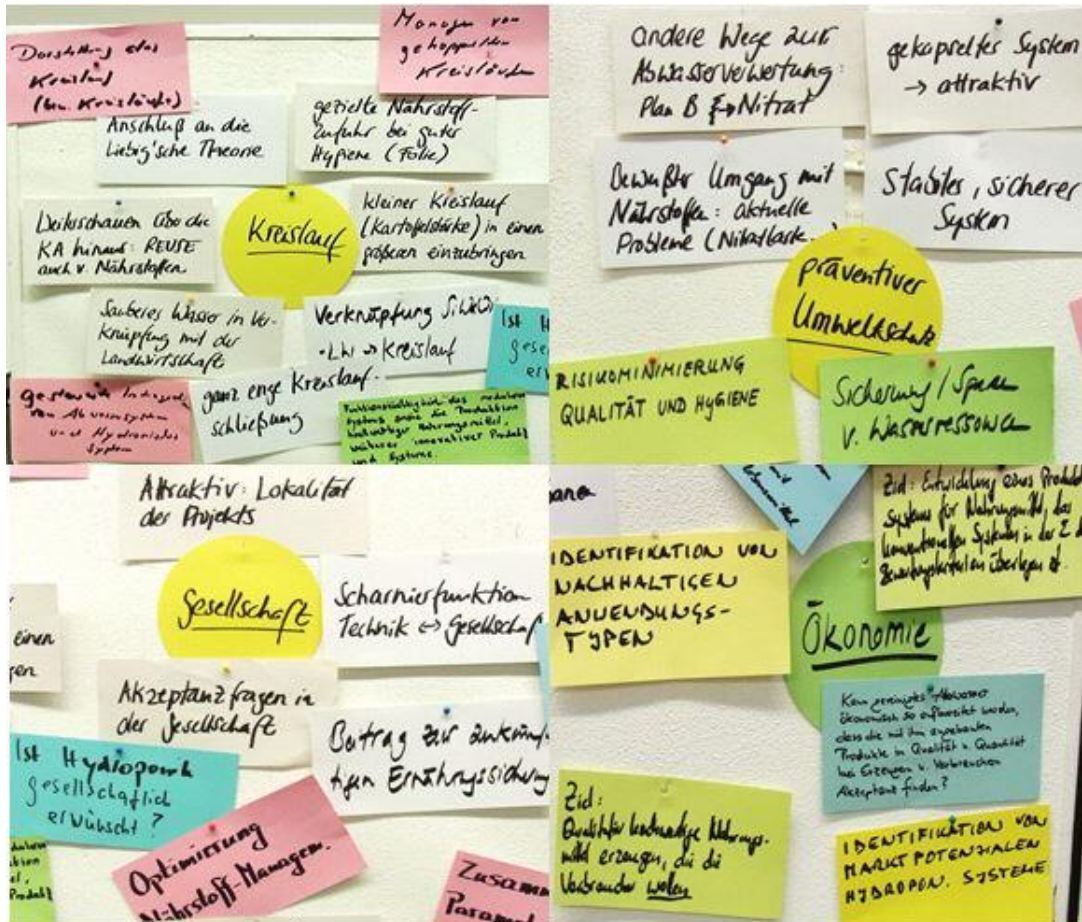 Darstellung des
Kreislauf
(bzw. Kreisläufe)
Managen von
gekoppelten
Kreisläufen
Anschluß an die
Liebig'sche Theorie
gezielte Nährstoff-
zufuhr bei guter
Hygiene (Folie)
Weiterschauen über die
KA hinaus: REUSE
auch v. Nährstoffen
Kreislauf
kleiner Kreislauf
(Kartoffelstärke) in einen
größeren einzubringen
Sauberes Wasser in Ver-
knüpfung mit der
Landwirtschaft
Verknüpfung SiWaWi
-LW → Kreislauf
Ist H
gese
erw
von Abwassersystem
und Hydroponik
System
ganz enge Kreislauf-
schließung
Funktionsfähigkeit des modularen
Systems sowie die Produktion
hochwertiger Nahrungsmittel,
weiterer innovativer Produkte
und Systeme.
andere Wege zur
Abwasserverwertung:
Plan B Nitrat
gekapselter System
→ attraktiv
Bewußter Umgang mit
Nährstoffen: aktuelle
Probleme (Nitratbela...
Stabiles, sicherer
System
präventiver
Umweltschutz
RISIKOMINIMIERUNG
QUALITÄT UND HYGIENE
Sicherung/Sparen
v. Wasserressourcen
Attraktiv: Lokalität
der Projekts
Gesellschaft
Scharnierfunktion
Technik ↔ Gesellschaf
einen
gen
Akzeptanzfragen in
der Gesellschaft
Beitrag zur zukünf-
tigen Ernährungssicherung
Ist Hydroponik
gesellschaftlich
erwünscht?
Optimierung
Nährstoff-Managem.
Zusamm
Paramet
IDENTIFIKATION VON
NACHHALTIGEN
ANWENDUNGS-
TYPEN
Ziel: Entwicklung eines Produkt
systems für Nahrungsmittel, das
konventionellen Systemen in der
Bewertungskriterien überlegen ist.
Ökonomie
Kann gereinigtes Abwasser
ökonomisch so aufbereitet werden,
dass die mit ihm angebauten
Produkte in Qualität u. Quantität
bei Erzeugern u. Verbrauchern
Akzeptanz finden?
Ziel:
Qualitativ hochwertige Nahrungs-
mittel erzeugen, die die
Verbraucher wollen
IDENTIFIKATION VON
MARKTPOTENZIALEN
HYDROPON. SYSTEME